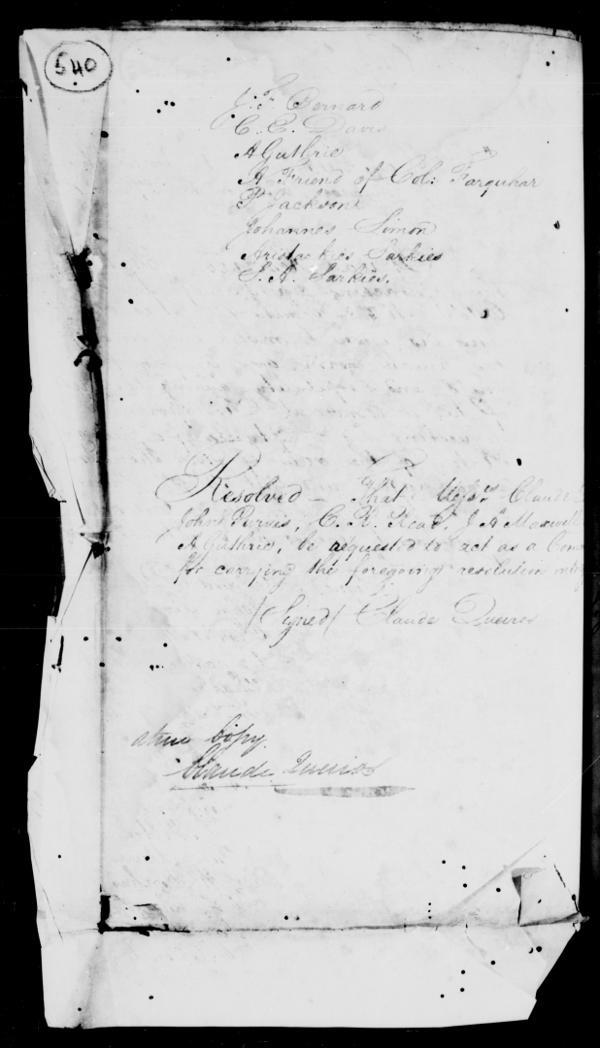 540
J. F. Bernard
C. E. Davis
A Guthrie
A Friend of Col: Farquhar
P. Jackson
Johannes Simon
Aristarkies Sarkies
S. A. Sarkies.
Resolved - That Messrs Claude
John Purvis, C. R. Read, J. A. Maxwell
A Guthrie, be requested to act as a Com
for carrying the foregoing resolution into
(Signed) Claude Queiros
a true Copy.
Claude Queiros